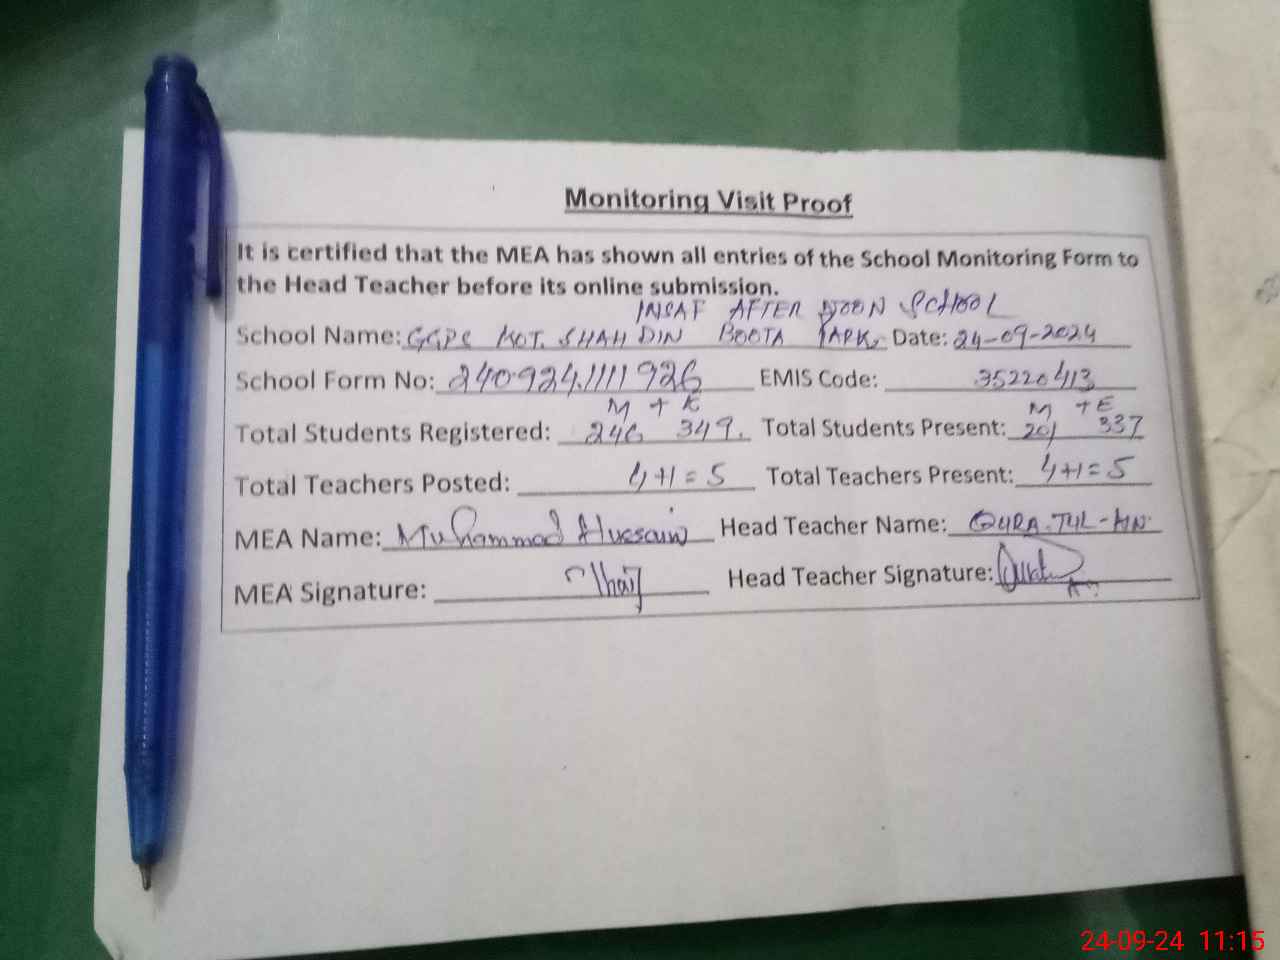 Monitoring Visit Proof
It is certified that the MEA has shown all entries of the School Monitoring Form to
the Head Teacher before its online submission.
INSAF AFTER NOON SCHOOL
School Name: GGPS KOT. SHAH DIN BOOTA PARK Date: 24-09-2024
School Form No: 240924.1111926 EMIS Code: 35220413
M + E M + E
Total Students Registered: 246 349. Total Students Present: 201 337
Total Teachers Posted: 4+1=5 Total Teachers Present: 4+1=5
MEA Name: Muhammad Hussain Head Teacher Name: QURA-TUL-AIN
MEA Signature: Head Teacher Signature:
24-09-24 11:15